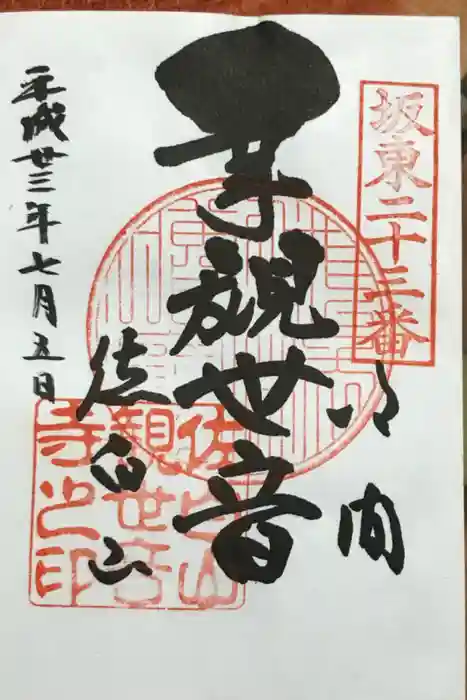 坂東二十三番
笠間
千手観世音
佐白山
平成廿三年七月五日
佐白山
観世音
寺之印